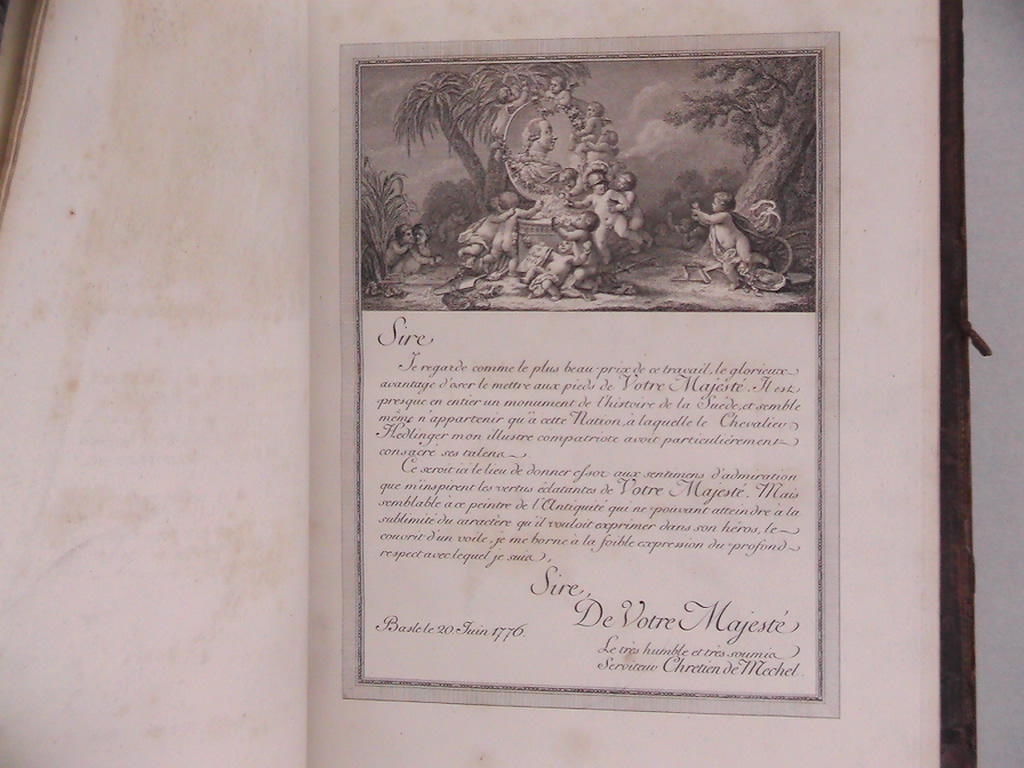 Sire,
Je regarde comme le plus beau prix de ce travail, le glorieux
avantage d'oser le mettre aux pieds de Votre Majésté. Il est
presque en entier un monument de l'histoire de la Suède, et semble
même n'appartenir qu'à cette Nation, à laquelle le Chevalier
Hedlinger mon illustre compatriote avoit particuliérement
consacré ses talens.
Ce seroit ici le lieu de donner essor aux sentimens d'admiration
que m'inspirent les vertus éclatantes de Votre Majesté. Mais
semblable à ce peintre de l'Antiquité qui ne pouvant atteindre à la
sublimité du caractère qu'il vouloit exprimer dans son héros, le
couvrit d'un voile, je me borne à la foible expression du profond
respect avec lequel je suis,
Sire,
De Votre Majesté
Basle le 20. Juin 1776.
Le très humble et très soumis
Serviteur Chretien de Mechel.